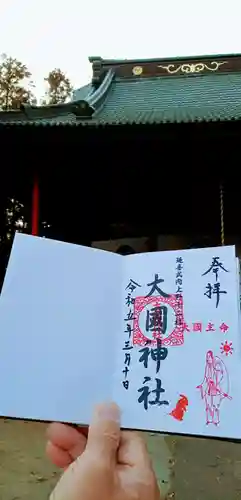 奉拝
延喜式内上野十二社
大國主命
大國神社
令和五年三月十日